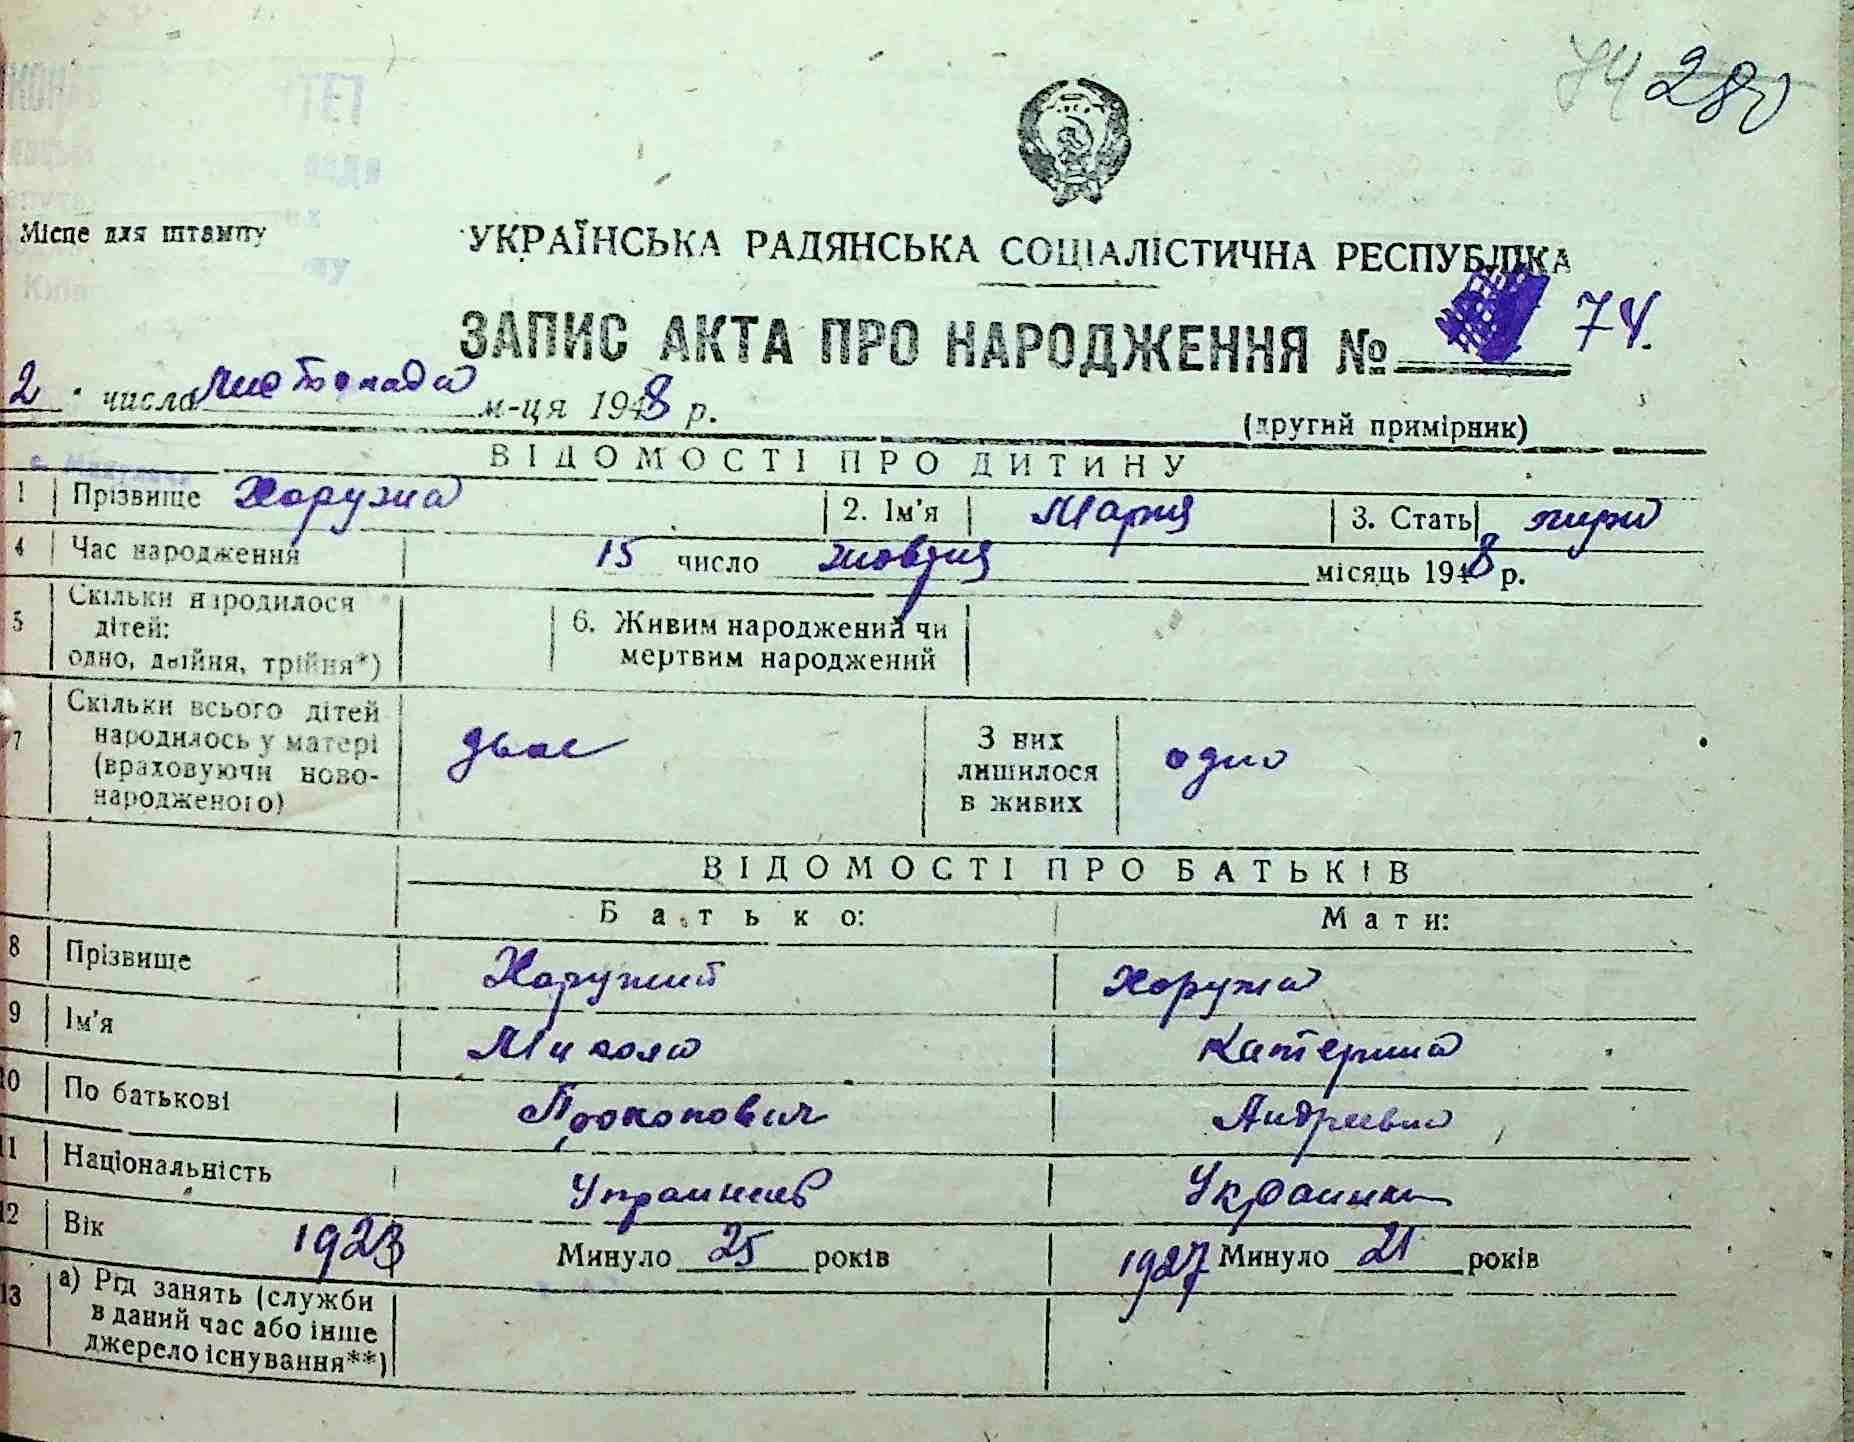 74 280
ТЕТ
Місце для штампу
УКРАЇНСЬКА РАДЯНСЬКА СОЦІАЛІСТИЧНА РЕСПУБЛІКА
ЗАПИС АКТА ПРО НАРОДЖЕННЯ № 74.
2 числа Листопада м-ця 1948 р.
(другий примірник)
ВІДОМОСТІ ПРО ДИТИНУ
1 Прізвище Хоружа 2. Ім'я Мария 3. Стать
4 Час народження 15 число жовтня місяць 1948 р.
5 Скільки народилося
дітей:
одно, двійня, трійня*)
6. Живим народжений чи
мертвим народжений
7 Скільки всього дітей
народилось у матері
(враховуючи ново-
народженого)
двое
З них
лишилося
в живих
одно
ВІДОМОСТІ ПРО БАТЬКІВ
Батько: Мати:
8 Прізвище Хоружий Хоружа
9 Ім'я Микола Катерина
10 По батькові Прокопович Андреевна
11 Національність Украинец Украинка
12 Вік 1923 Минуло 25 років 1927 Минуло 21 років
13 а) Рід занять (служби
в даний час або інше
джерело існування**)